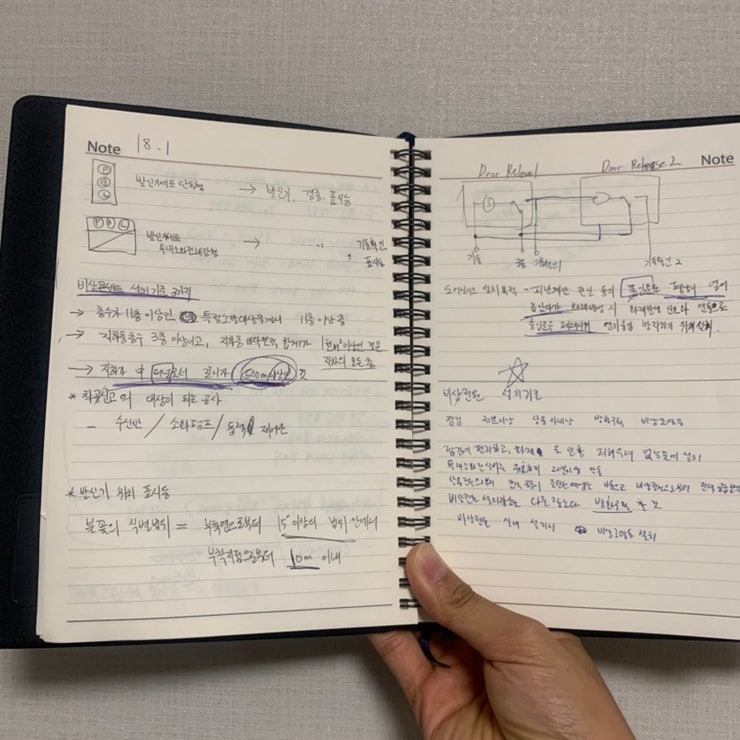 Note 18-1
P B L
발신기세트 단독형 → 발신기, 경종, 표시등
P B L
발신기세트 옥내소화전내장형 → 〃, 기동확인 표시등
비상콘센트 설치기준 3가지
→ 층수가 11층 이상인 특정소방대상물에서 11층 이상 층
→ 지하층층수 3층 이상이고, 지하층 바닥면적 합계가 1천㎡ 이상인 것은 지하의 모든 층
→ 지하가 中 터널로서 길이가 500m이상인 것
* 착공신고의 대상이 되는 공사
- 수신반 / 소화펌프 / 동력 제어반
* 발신기 위치 표시등
불꽃의 식별범위 = 부착면으로부터 15° 이상의 범위 안에서
부착지점으로부터 10m 이내
Note
Door Release 2
기동 공통 기동확인1 기동확인2
설치목적 - 피난계단 전실 등의 출입문은 평상시 열어
화재발생 시 화재감지기 신호와 연동으로
출입문을 폐쇄시켜 연기를 방지하기 위해 설치.
비상전원 설치기준
점검 20분이상 상용 방화구획 비상조명등
점검에 편리하고, 화재 도난 등 피해우려 없는곳에 설치
유효하게 20분이상 작동
비상전원 설치장소는 다른 장소와 방화구획 할 것
비상전원 실내 설치시 비상조명등 설치